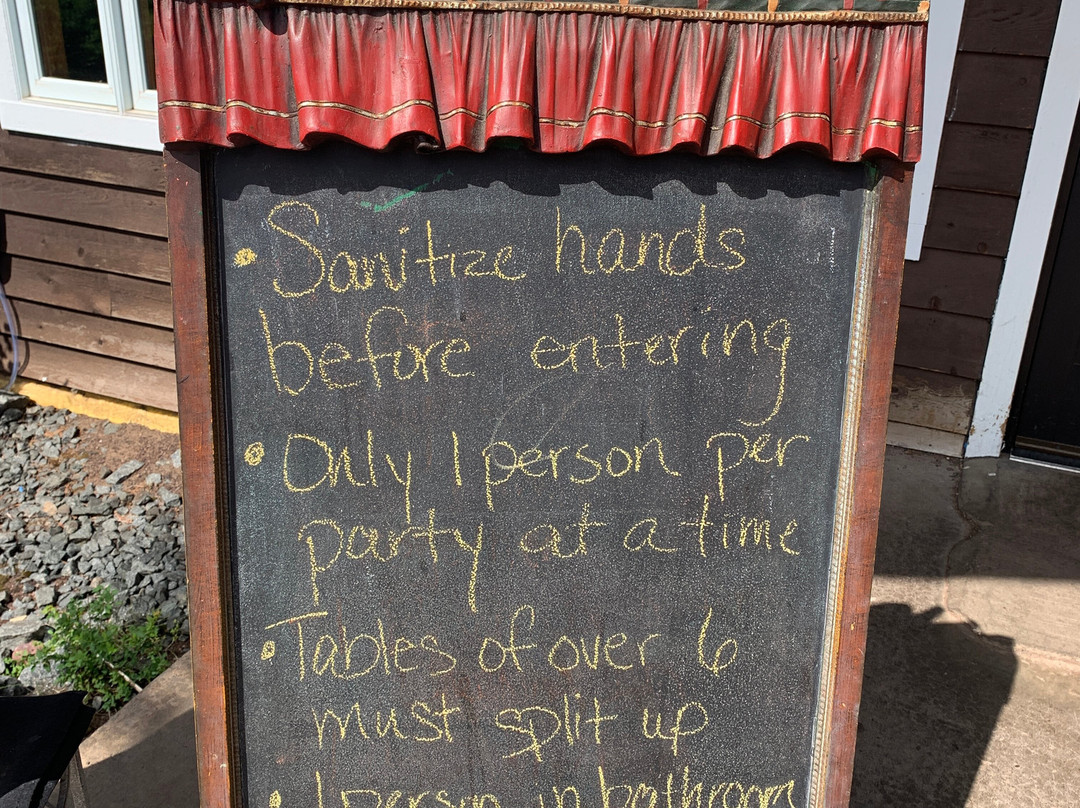 • Sanitize hands
before entering
• Only 1 person per
party at a time
• Tables of over 6
must split up
• 1 person in bathroom